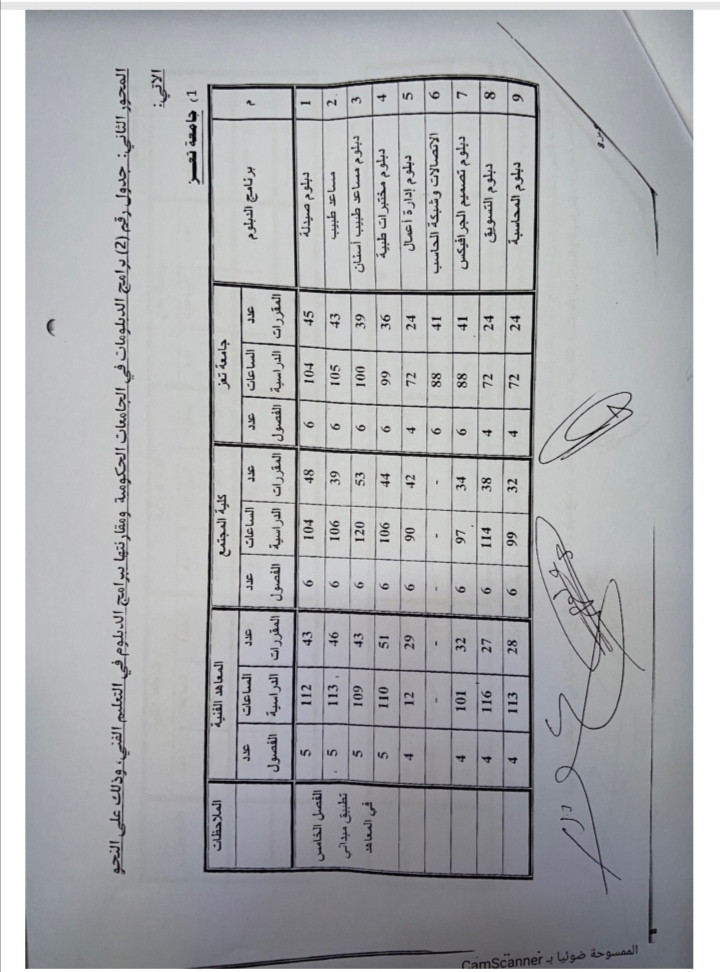 المحور الثاني: جدول رقم (2) برامج الدبلومات في الجامعات الحكومية ومقارنتها ببرامج الدبلوم في التعليم الفني، وذلك على النحو
الآتي:
1. جامعة تعـز
م برنامج الدبلوم جامعة تعز كلية المجتمع المعاهد الفنية الملاحظات
عدد المقررات الساعات الدراسية عدد الفصول عدد المقررات الساعات الدراسية عدد الفصول عدد المقررات الساعات الدراسية عدد الفصول
1 دبلوم صيدلة 45 104 6 48 104 6 43 112 5 الفصل الخامس
2 مساعد طبيب 43 105 6 39 106 6 46 113 5 تطبيق ميداني
3 دبلوم مساعد طبيب أسنان 39 100 6 53 120 6 43 109 5 في المعاهد
4 دبلوم مختبرات طبية 36 99 6 44 106 6 51 110 5
5 دبلوم إدارة أعمال 24 72 4 42 90 6 29 12 4
6 الاتصالات وشبكة الحاسب 41 88 6 - - - - - -
7 دبلوم تصميم الجرافيكس 41 88 6 34 97 6 32 101 4
8 دبلوم التسويق 24 72 4 38 114 6 27 116 4
9 دبلوم المحاسبة 24 72 4 32 99 6 28 113 4
الممسوحة ضوئيا بـ CamScanner